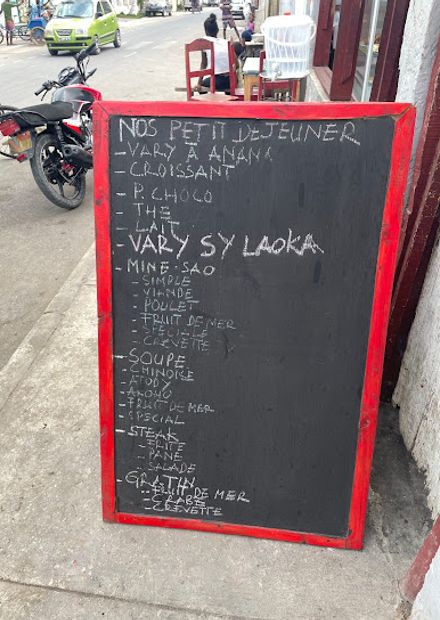 NOS PETIT DEJEUNER
- VARY A ANANA
- CROISSANT
- P. CHOCO
- THE
- LAIT
- VARY SY LAOKA
- MINE-SAO
- SIMPLE
- VIANDE
- POULET
- FRUIT DE MER
- SPECIALE
- CREVETTE
- SOUPE
- CHINOISE
- ATODY
- AKOHO
- FRUIT DE MER
- SPECIAL
- STEAK
- FRITE
- PANE
- SALADE
- GRATIN
- FRUIT DE MER
- CRABE
- CREVETTE